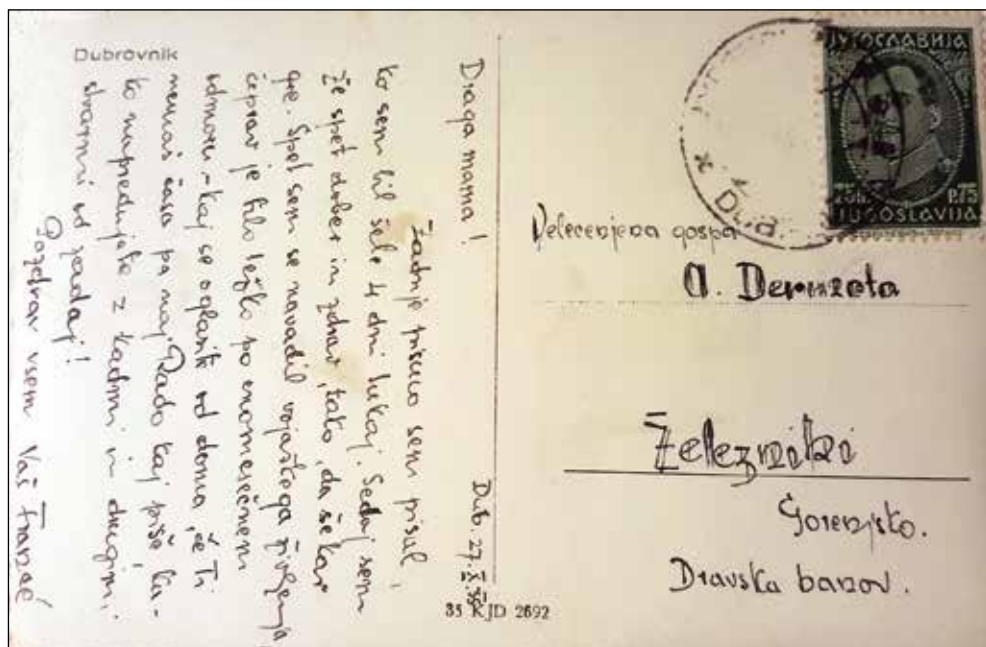 Dubrovnik
Dub. 27. X. 35
Draga mama!
Zadnje pismo sem pisal,
ko sem bil šele 4 dni tukaj. Sedaj sem
že spet dober in zdrav, tako, da še kar
gre. Spet sem se navadil vojaškega življenja
čeprav je bilo težko po enomesečnem
odmoru – kaj se oglasite od doma, če Ti
nemaš časa pa naj Rado kaj piše ka-
ko napredujete z kadmi in drugimi
stvarmi od zadaj!
Pozdrav vsem Vaš Francé
35 KJD 2692
ЈУГОСЛАВИЈА
P.75
JUGOSLAVIJA
Velecenjena gospa
A. Dermota
Železniki
Gorenjsko.
Dravska banov.